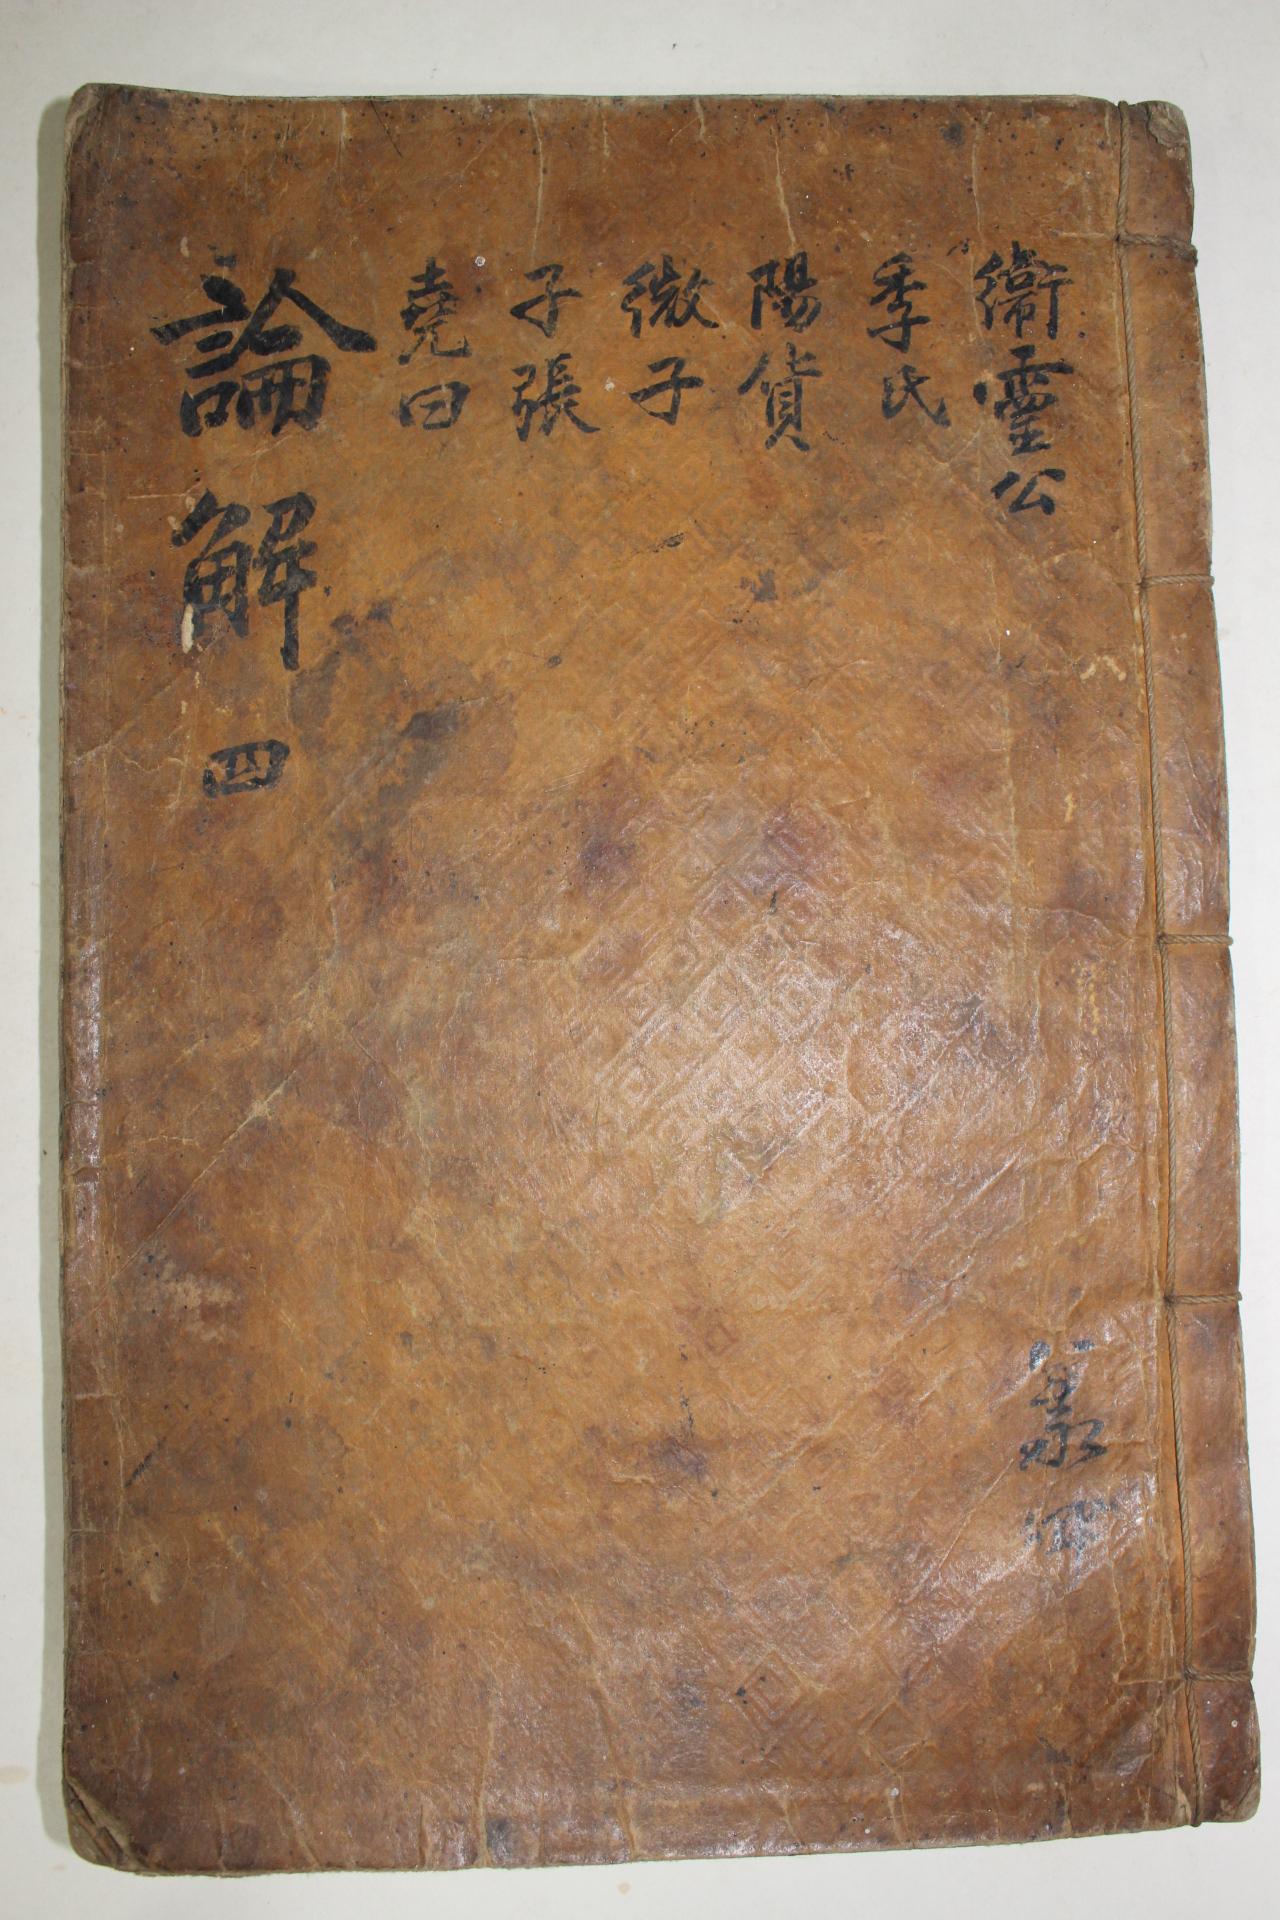 衞靈公
季氏
陽貨
微子
子張
堯曰
論解 四
共四